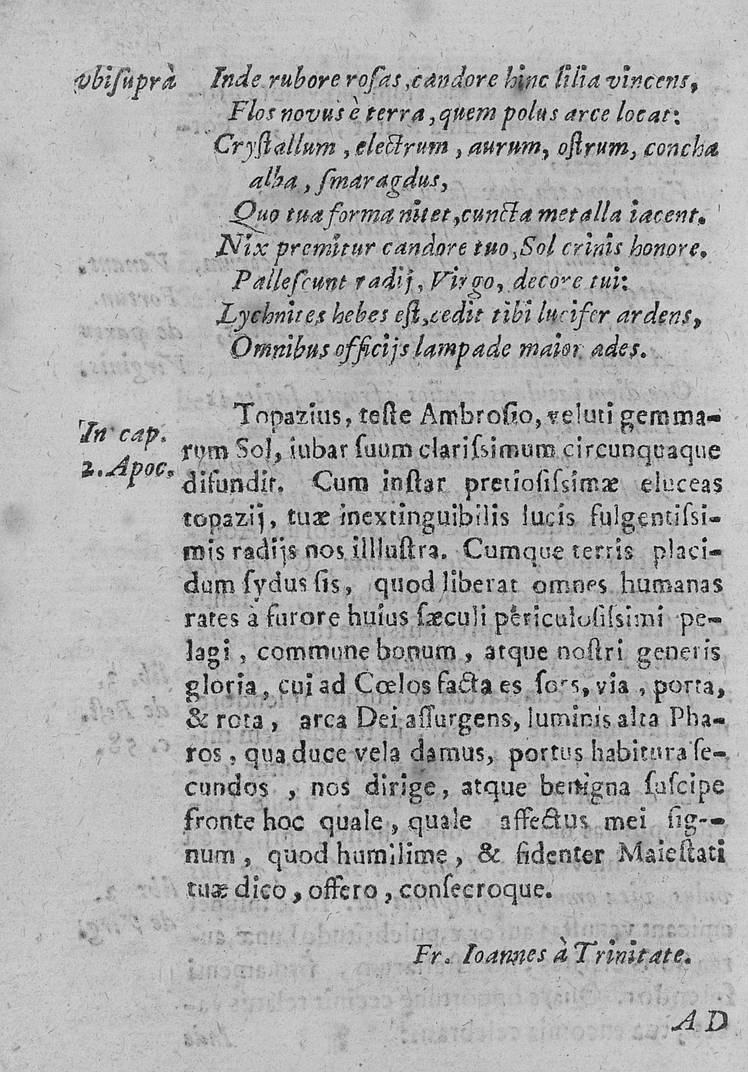 vbiſuprà
Inde rubore roſas, candore hinc lilia vincens,
Flos novus è terra, quem polus arce locat:
Cryſtallum, electrum, aurum, oſtrum, concha
alba, ſmaragdus,
Quo tua forma nitet, cuncta metalla iacent.
Nix premitur candore tuo, Sol crinis honore.
Palleſcunt radij, Virgo, decore tui:
Lychnites hebes eſt, cedit tibi lucifer ardens,
Omnibus officijs lampade maior ades.
In cap.
2. Apoc.
Topazius, teſte Ambroſio, veluti gemma-
rum Sol, iubar ſuum clariſsimum circunquaque
difundit. Cum inſtar pretioſiſsimæ eluceas
topazij, tuæ inextinguibilis lucis fulgentiſsi-
mis radijs nos illluſtra. Cumque terris placi-
dum ſydus ſis, quod liberat omnes humanas
rates à furore huius ſæculi periculoſiſsimi pe-
lagi, commune bonum, atque noſtri generis
gloria, cui ad Cœlos facta es fors, via, porta,
& rota, arca Dei aſſurgens, luminis alta Pha-
ros, qua duce vela damus, portus habitura ſe-
cundos, nos dirige, atque benigna ſuſcipe
fronte hoc quale, quale affectus mei ſig-
num, quod humilime, & fidenter Maieſtati
tuæ dico, offero, conſecroque.
Fr. Ioannes à Trinitate.
A D